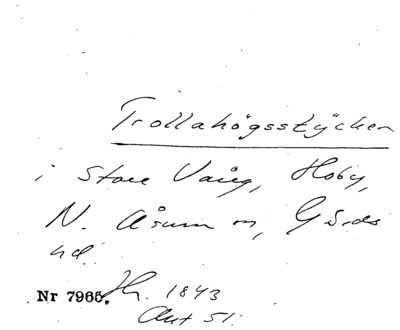 Trollahögsstycken
i Store Vång, Hoby,
N. Åsum sn, Gärds
hd.
Nr 7965. Jh. 1843
Akt 51.